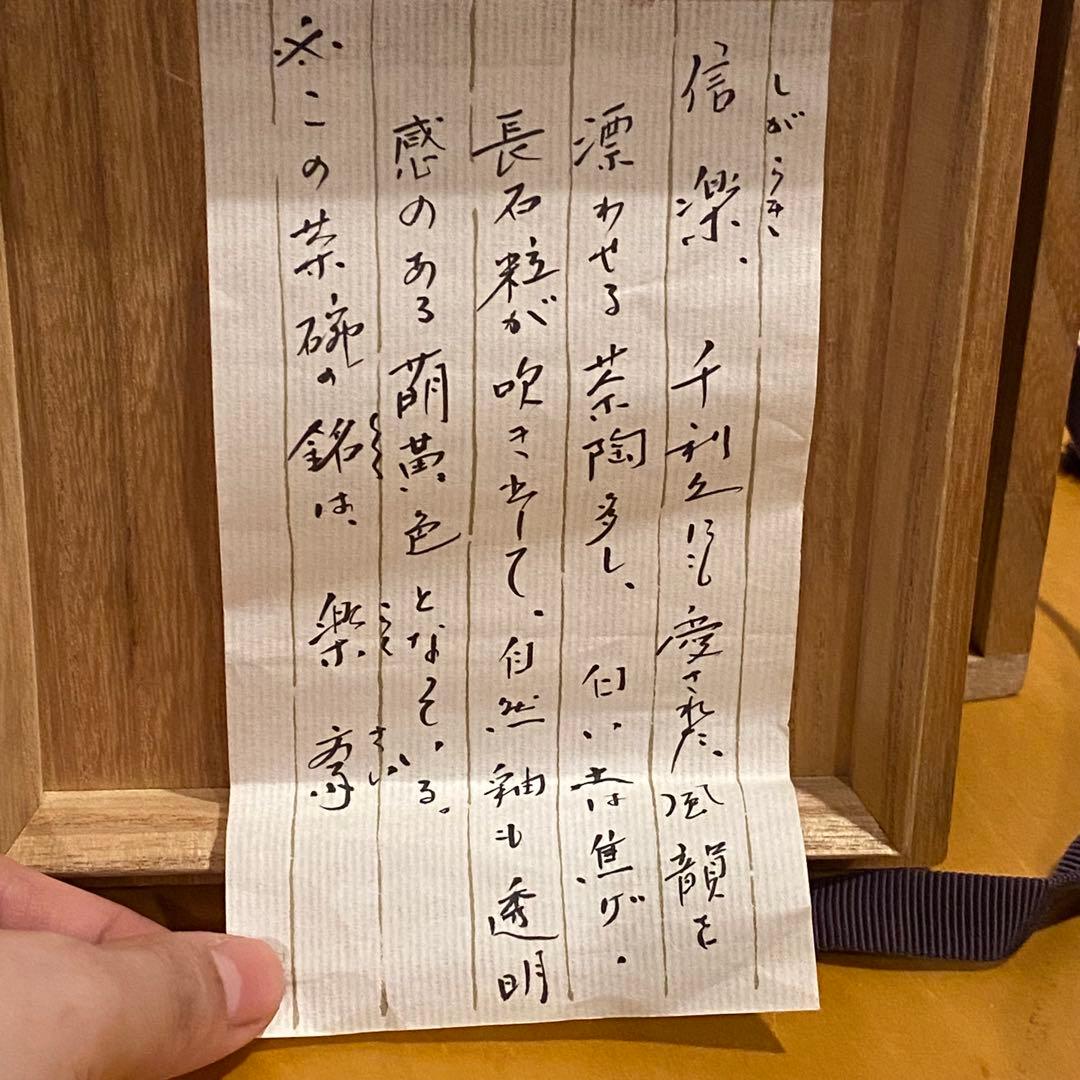 しがらき
信楽、千利久にも愛された、風韻を
漂わせる茶陶多し、白い土は焦げ、
長石粒が吹き出して、自然釉も透明
感のある萌黄色となっている。
※この茶碗の銘は、楽斎
らくさい